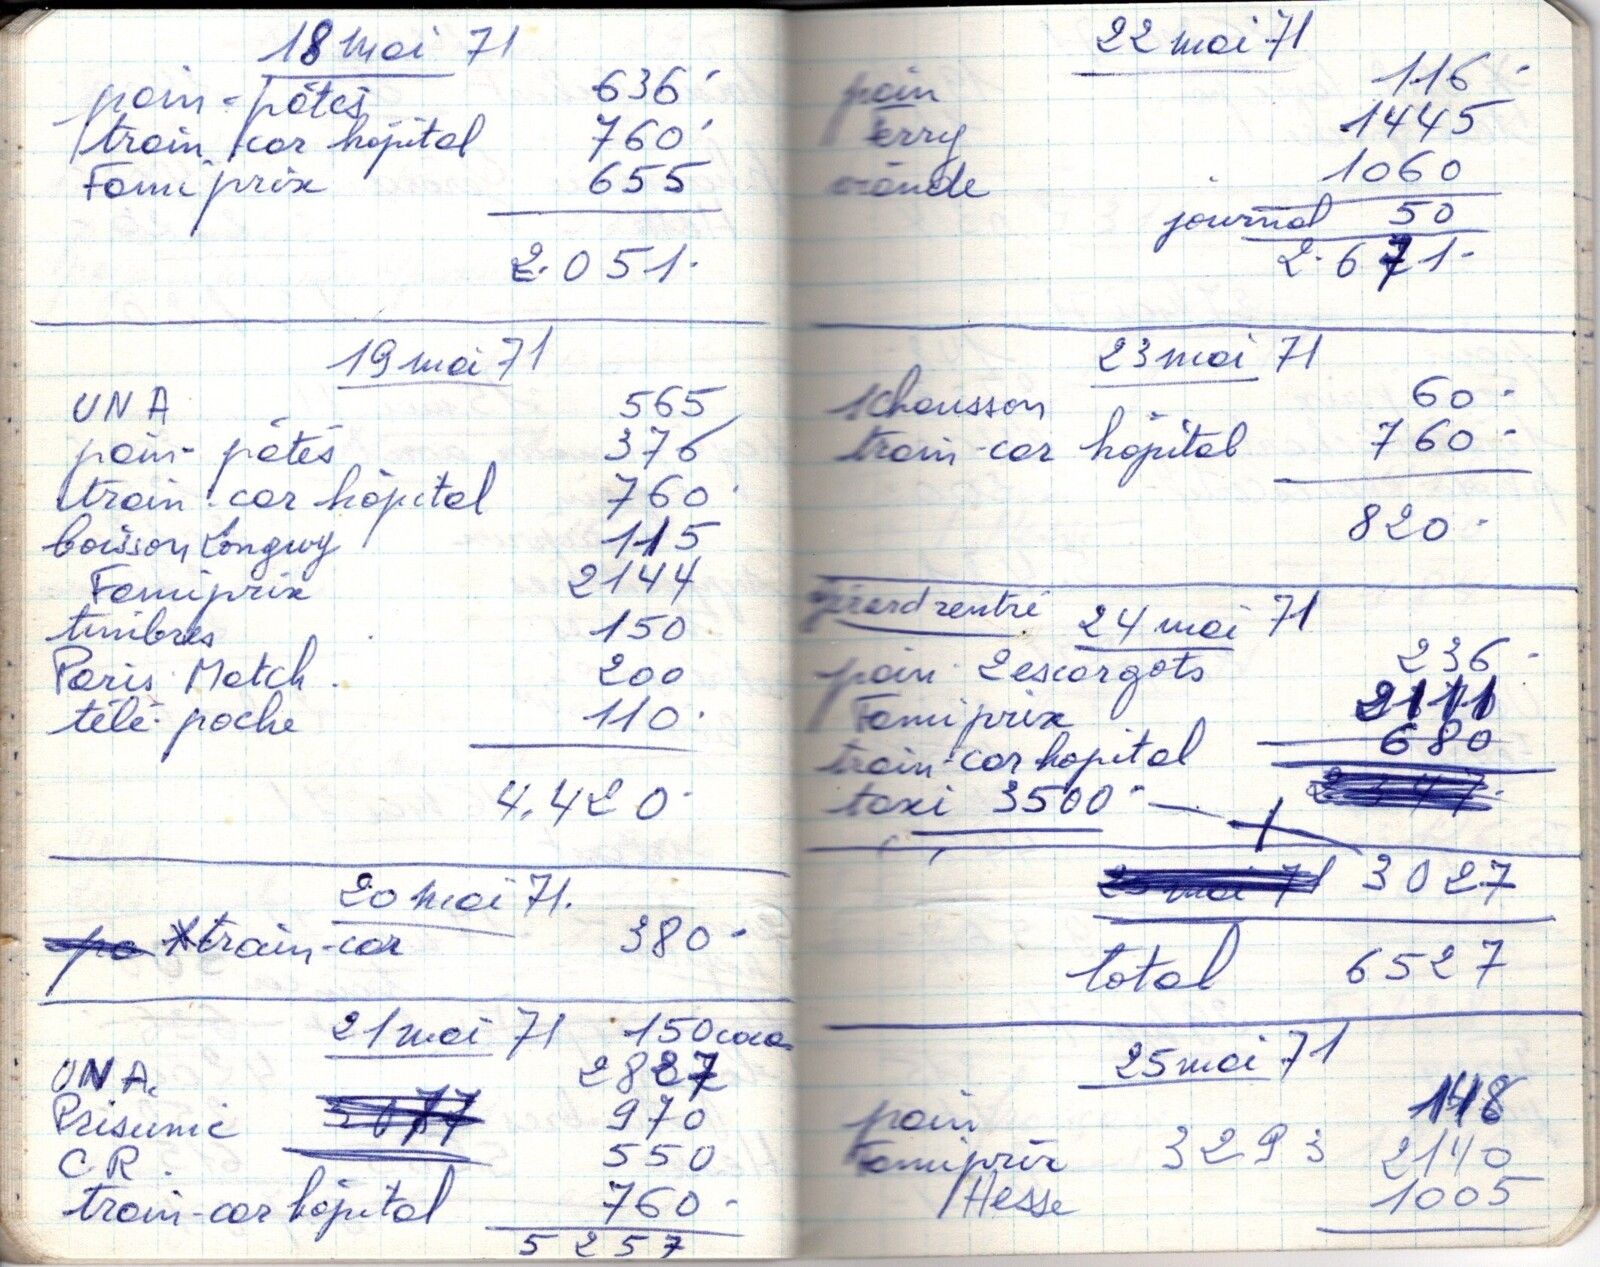 18 mai 71
pain - pâtes 636
train - car hôpital 760
Famiprix 655
2.051.
19 mai 71
UNA 565
pain - pâtes 376
train - car hôpital 760
boisson Longwy 115
Famiprix 2144
timbres 150
Paris Match 200
télé-poche 110.
4.420
20 mai 71.
train-car 380
21 mai 71 150 coca
UNA. 2827
Prisunic 970
C.R. 550
train-car hôpital 760
5257
22 mai 71
pain 116
1445
viande 1060
journal 50
2.671
23 mai 71
1 chausson 60
train-car hôpital 760
820
gérard rentré 24 mai 71
pain 2 escargots 236
Famiprix 2111
train-car hopital 680
taxi 3500
3027
total 6527
25 mai 71
pain 148
Famiprix 3293 2140
Hesse 1005